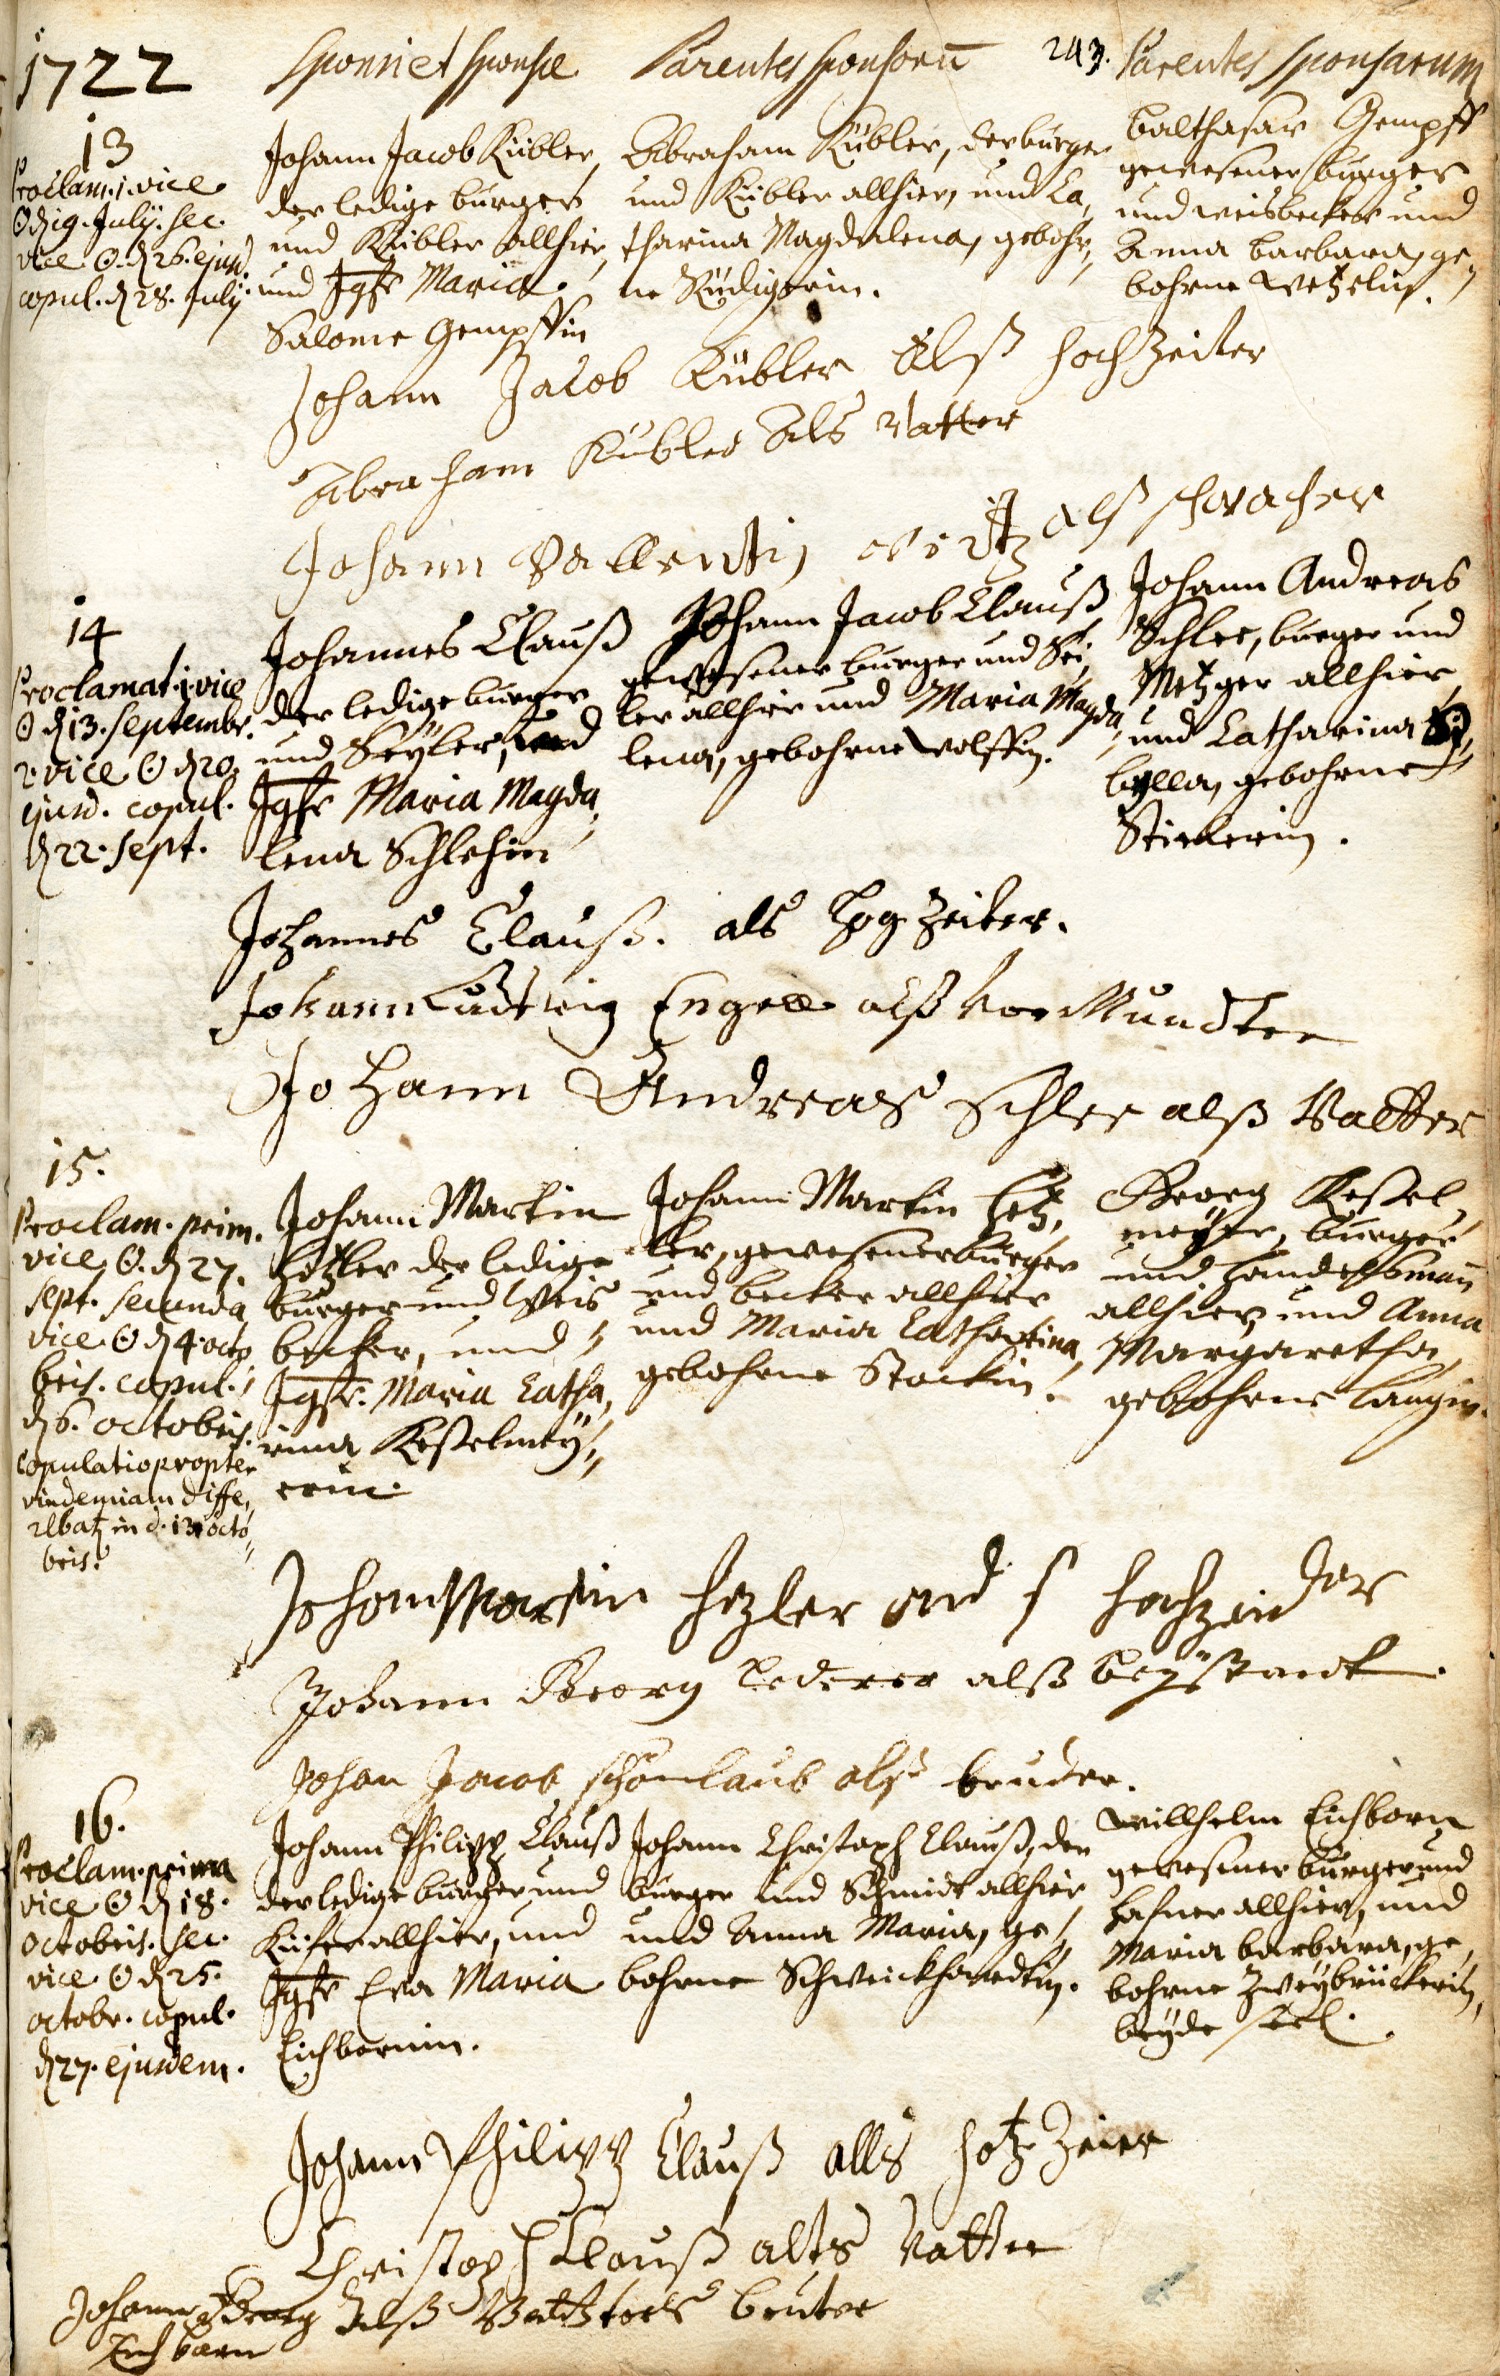 1722
Sponsi et Sponsæ
Parentes Sponsorū
243.
Parentes Sponsarum
13
Proclam. 1. vice
☉ d. 19. July. sec.
vice ☉. d. 26. ejusd.
copul. d. 28. July.
Johann Jacob Kübler,
der ledige burger
und Kübler allhier,
und Jgfr Maria
Salome Gempffin
Abraham Kübler, der burger
und Kübler allhier, und Ca,
tharina Magdalena, gebohr,,
ne Rüdigerin.
Balthasar Gempff
gewesener burger
und weisbecker und
Anna Barbara, ge,
bohrne Wetzelin.
Johann Jacob Kübler Alß hochzeiter
Abraham Kübler Als Vatter
Johann Vallentin Wirtz alß schwacher
14
Proclamat. 1. vice
☉ d. 13. Septembr.
2. vice ☉ d. 20.
ejusd. copul.
d. 22. Sept.
Johannes Clauß
der ledige burger
und Seyler, und
Jgfr Maria Magda,
lena Schlehin
Johann Jacob Clauß
gewesener burger und Sei,
ler allhier und Maria Magda,,
lena, gebohrne Wolffin.
Johann Andreas
Schlee, burger und
Metzger allhier,
und Catharina Si,
bylla, gebohrne
Sticklerin.
Johannes Clauß. als Hogzeiter.
Johann Ludwig Engel alß vor Mundter
Johann Andreas Schlee alß Vatter
15.
Proclam. prim.
vice ☉. d. 27.
Sept. secunda
vice ☉ d. 4. octo
bris. copul.
d. 6. octobris.
copulatio propter
vindemiam diffe,
rebat in d. 13 octo,,
bris.
Johann Martin
Hetzler der ledige
burger und Weis
becker, und
Jgfr. Maria Catha,
rina Keßelmey,,
erin.
Johann Martin Hetz,
ler, gewesener burger
und becker allhier
und Maria Catharina,
gebohrne Stockin.
Georg Keßel,
meyer, burger
und Handelsmañ
allhier, und Anna
Margaretha,
gebohrne Langin.
Johann Martin Hezler als hochzeider
Johann Georg Lederer alß beystandt.
Johan Jacob schönlaub alß bruder.
16.
Proclam. prima
vice ☉ d. 18.
octobris. sec.
vice ☉ d. 25.
octobr. copul.
d. 27. ejusdem.
Johann Philipp Clauß
der ledige burger und
Küfer allhier, und
Jgfr Eva Maria
Eichbornin.
Johann Christoph Clauß, der
burger und Schmidt allhier,
und Anna Maria, ge,,
bohrne Schweickhardtin.
Willhelm Eichborn
gewesener burger und
Hafner allhier, und
Maria Barbara, ge,
bohrne Zweybrückerin,
beyde seel.
Johann Philipp Clauß alls Hotzzeier
Christoph Clauß alts Vatter
Johann Georg alß Vatters bruter
Eichborn